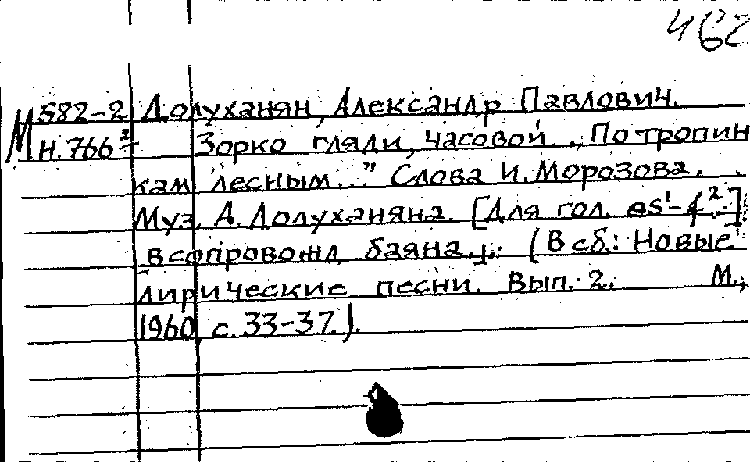 462
М 582-2 Долуханян, Александр Павлович.
н. 766 Зорко гляди, часовой. „По тропин
кам лесным..." Слова И. Морозова.
Муз. А. Долуханяна. [Для гол. es¹-f²]
в сопровожд. баяна. (В сб.: Новые
лирические песни. Вып. 2. М.,
1960, с. 33-37.).